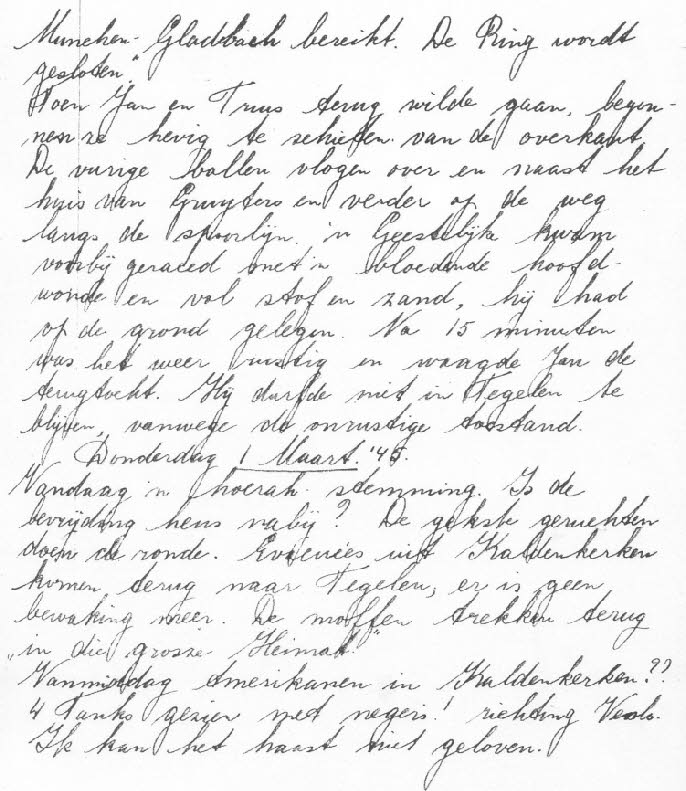 Munchen-Gladbach bereikt. De Ring wordt
gesloten."
Toen Jan en Truus terug wilde gaan, begon-
nen ze hevig te schieten van de overkant.
De vurige ballen vlogen over en naast het
huis van Gruyters en verder op de weg
langs de spoorlijn. 'n Geestelijke kwam
voorbij geraced met 'n bloedende hoofd-
wonde en vol stof en zand, hij had
op de grond gelegen. Na 15 minuten
was het weer rustig en waagde Jan de
terugtocht. Hij durfde niet in Tegelen te
blijven, vanwege de onrustige toestand.
Donderdag 1 Maart. '45.
Vandaag 'n hoerah stemming. Is de
bevrijding heus nabij? De gekste geruchten
doen de ronde. Evacuées uit Kaldenkerken
komen terug naar Tegelen, er is geen
bewaking meer. De moffen trekken terug
"in die grosze Heimat."
Vanmiddag Amerikanen in Kaldenkerken??
4 Tanks gezien met negers! richting Venlo.
Ik kan het haast niet geloven.